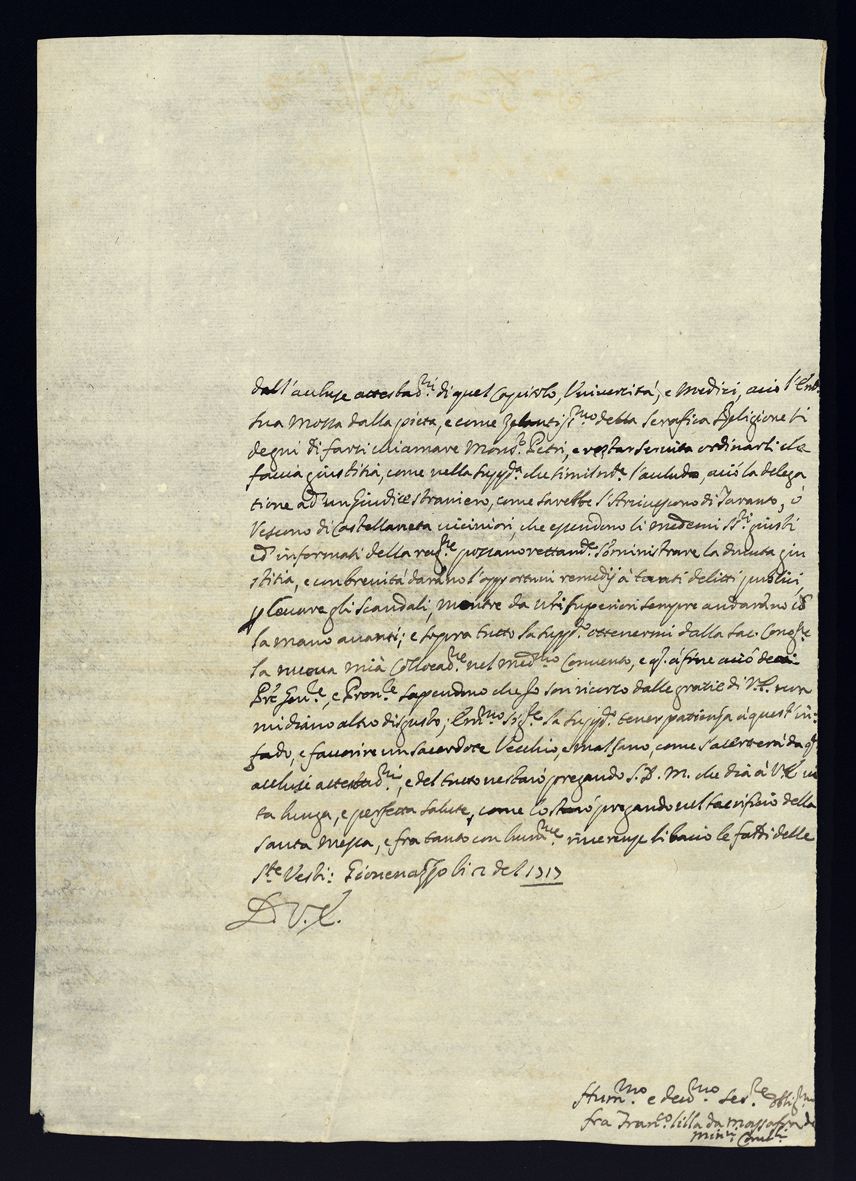 dall'accluse attestad.ni di quel Capitolo, Università, e Medici, acciò l'Em.
sua mossa dalla pietà, e come Zelantiss.mo della Serafica Religione si
degni di farsi chiamare Mons.r Petri, e restar servita ordinarli che
faccia giustitia, come nella supp.ca che
tione ad un Giudice straniero, come sarebbe l'Arcivescovo di Taranto, ò
Vescovo di Castellaneta viciniori, che essendono li medemi SS.ri giusti
ed informati della possano rettam.te somministrare la dovuta giu
stitia, e con brevità darano l'opportuni remedij à tanti delitti publici,
levare gli scandali, mentre da superiori sempre andarano
la mano avanti; e sopra tutto la supp.co ottenermi dalla Sac. Cong.ne
la nuova mià Collocad.ne nel med.mo Convento, e q.o à fine acciò
P.re Gen.le, e Prov.le sapendono che fo son ricorso dalle gratie di V.E. non
mi diano altro disgusto; Em.mo Sig.re la supp.co tener patienza à quest'in:
fado, e favorire un sacerdote Vecchio, e mal sano, come s'accerterà da q.
acclusi attestad.ni, e del tutto ne starò pregando S.D.M. che dia à V.E. vi
ta lunga, e perfetta salute, come lo starò pregando nel sacrificio della
Santa Messa, e fra tanto con hum.me riverenze li bacio le faldi delle
S.te Vesti: Giovenazzo li 2 del 1717
D.V.E.
Hum.mo e dev.mo Ser.re obblig.mo
fra Fran.co lilla da Massafra de
Min.ri Conv.li